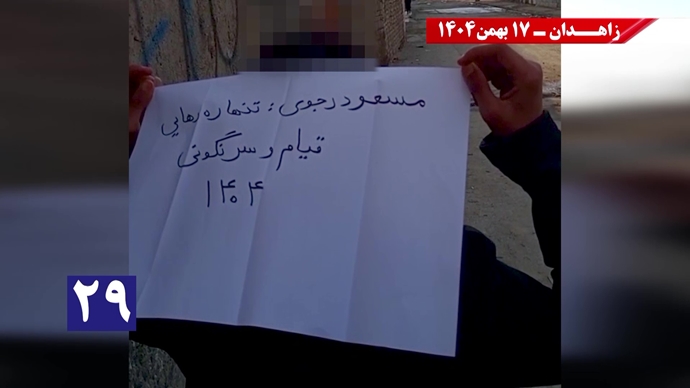 زاهـدان ــ ۱۷ بهمن۱۴۰۴
مسعود رجوی: تنها ره رهایی
قیام و سرنگونی
۱۴۰۴
۲۹